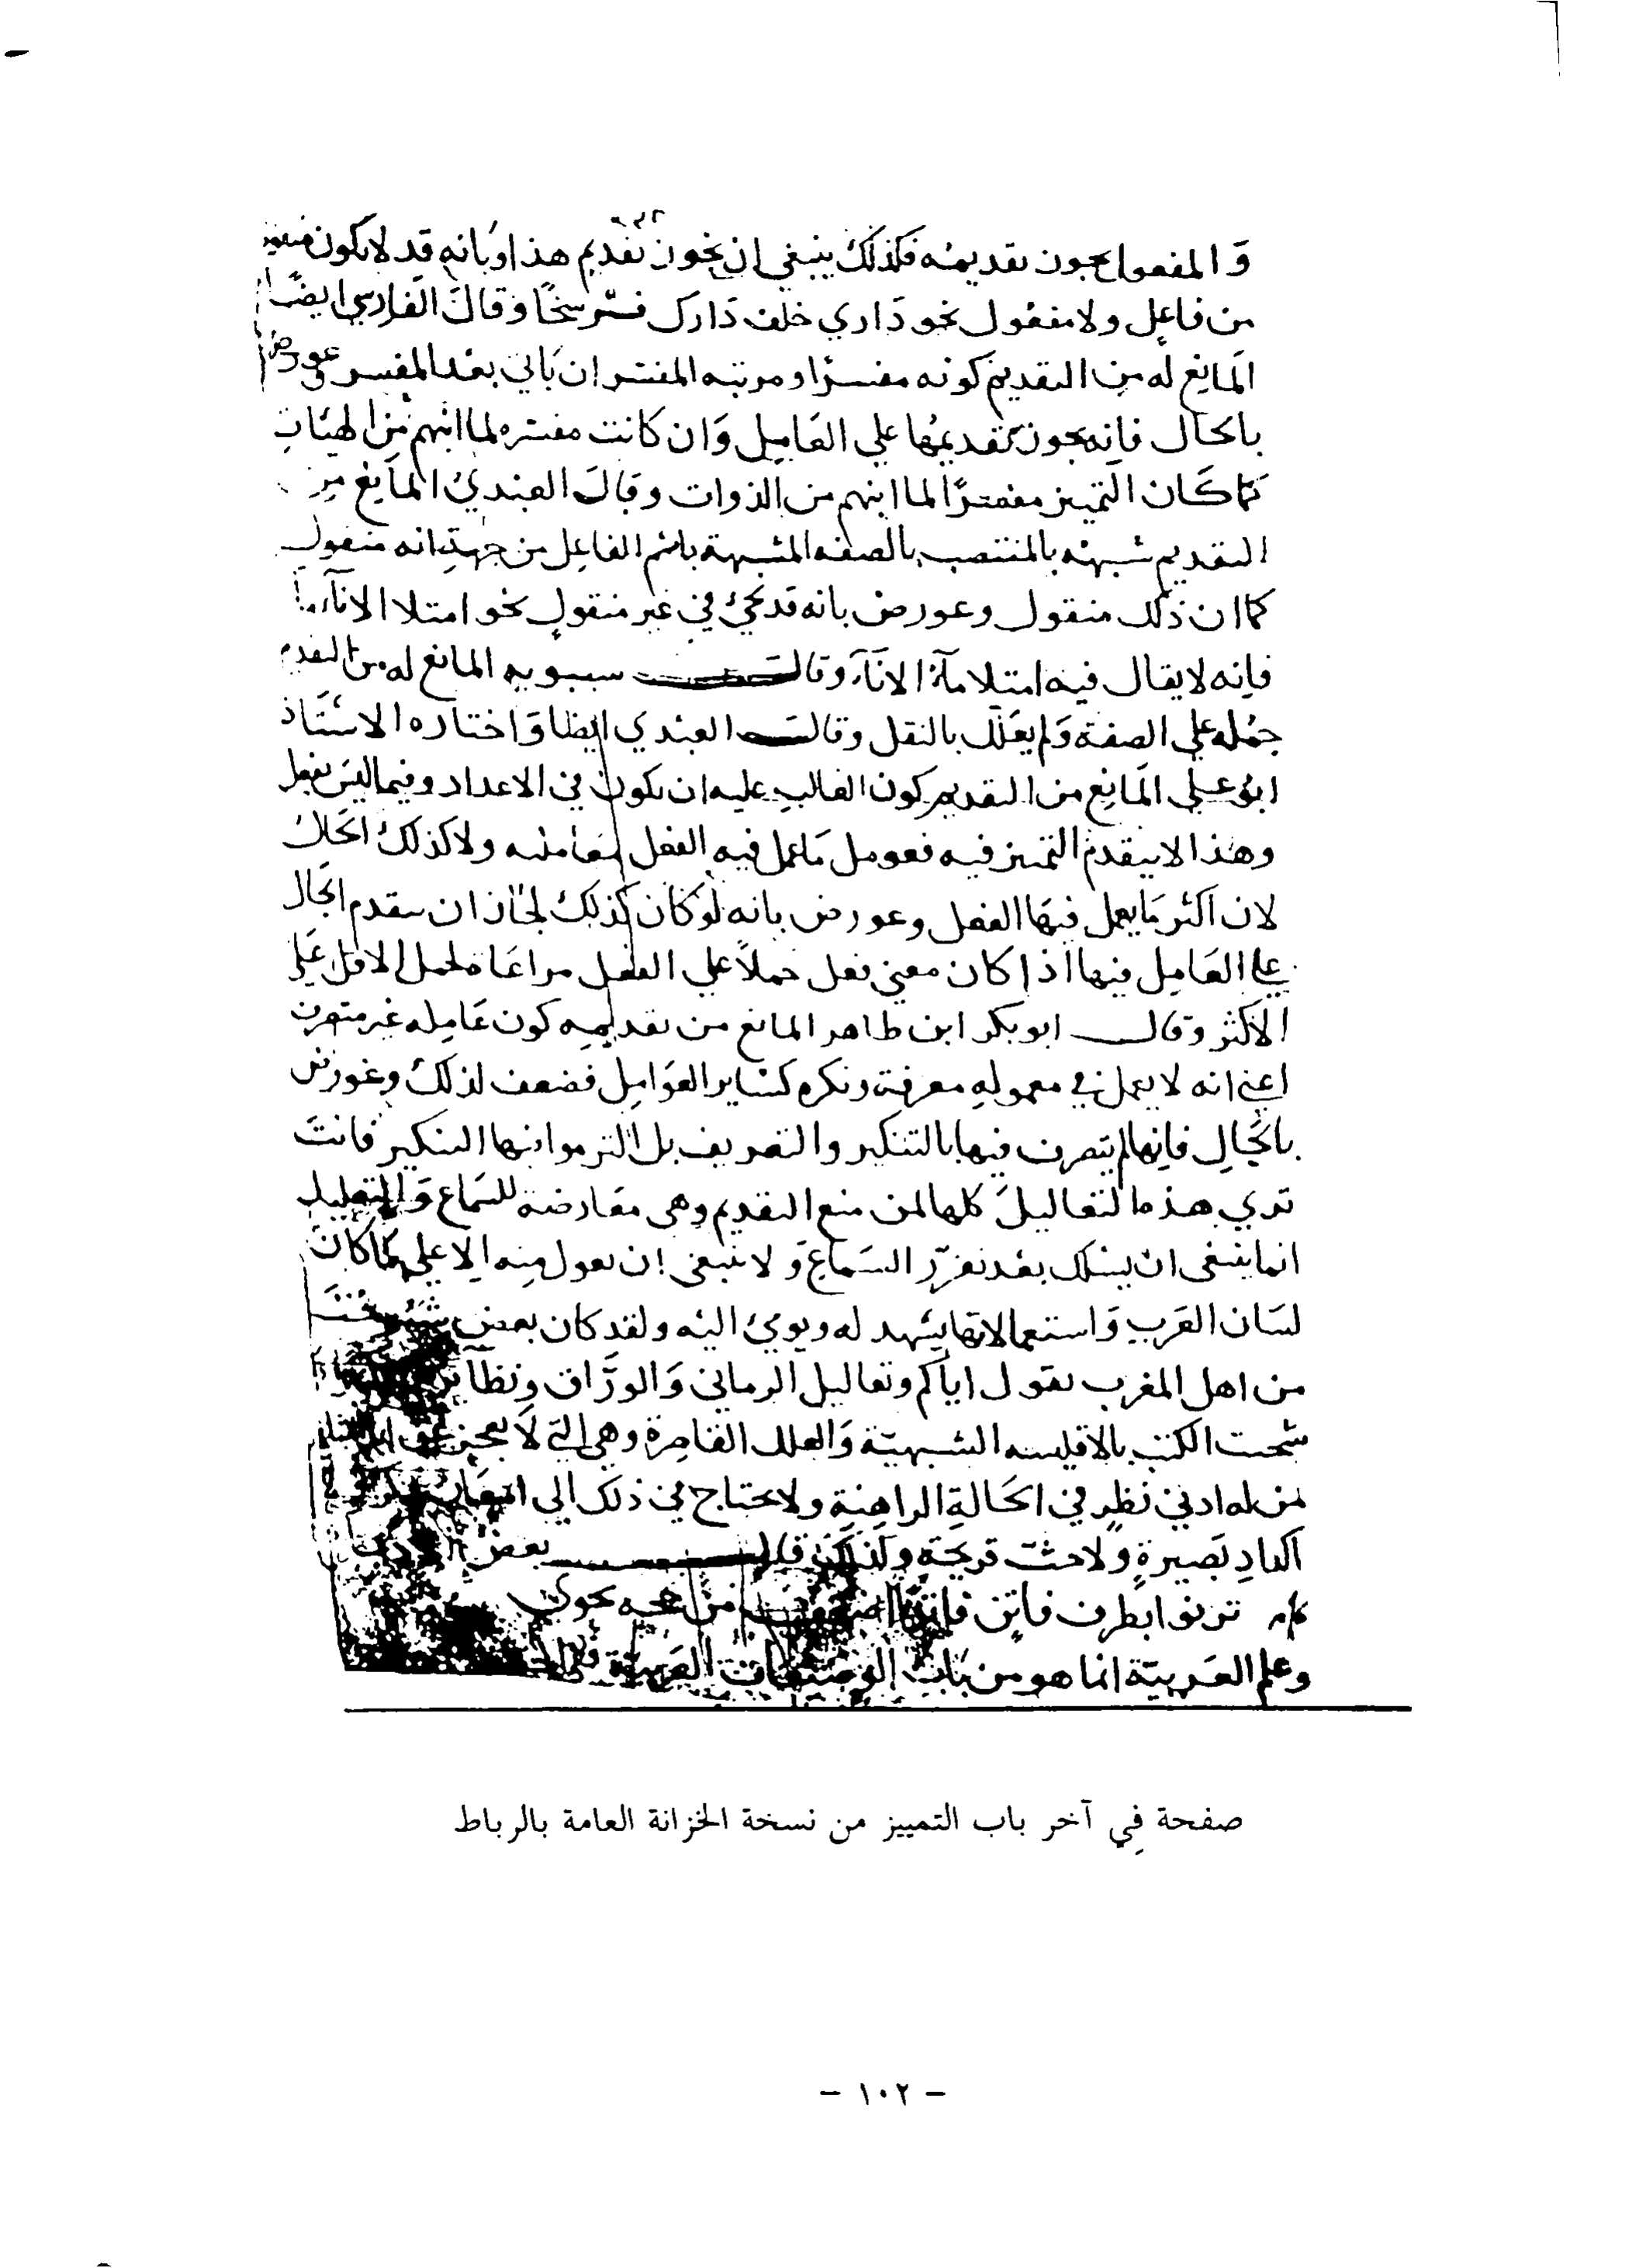 وَالمفعول يجوز تقديمه فكذلك ينبغي ان يجوز تقديم هذا وبانه قد لا يكون منقولا
من فاعل ولا مفعول نحو داري خلف دارك فرسخًا وقال الفارسي ايضًا
المانع له من التقديم كونه مفسرًا ومرتبه المفسر ان ياتي بعد المفسر وعورض
بالحال فانه يجوز تقديمها علي العامِل وَان كانت مفسره لما انبهم من الهيئات
كما كان التمييز مفسرًا لما انبهم من الذوات وقال العبدي المانع من
التقديم شبهه بالمنتصب بالصفه المشبهة باسم الفاعل من جهة انه منقول
كما ان ذلك منقول وعورض بانه قد يجئ في غير منقول نحو امتلا الاناء ما
فانه لا يقال فيه امتلا مآءُ الانآء وقال سيبويه المانع له من التقدم
حمله علي الصفة وَلم يعلل بالنقل وقال العبدي ايضا وَاختاره الاستاذ
ابو علي المانع من التقديم كون الغالب عليه ان يكون في الاعداد وفيما ليس بفعل
وهذا لا يتقدم التمييز فيه فعومل ما عمل فيه الفعل معاملته ولا كذلك الحال
لان اكثر ما يعمل فيها الفعل وعورض بانه لو كان كذلك لجاز ان يتقدم الحال
علي العامِل فيها اذا كان معني فعل حملاً علي الفعل مراعاة لحمل الاقل علي
الاكثر وقال ابو بكر ابن طاهر المانع من تقديمه كون عَامِله غير متصرف
اعني انه لا يعمل في معموله معرفة ونكره كساير العوَامِل فضعف لذلك وعورض
بالحال فانها لم يتصرف فيها بالتنكير والتعريف بل التزموا فيها التنكير فانت
تري هذه التعاليلَ كلها لمن منع التقديم وهي معارضة للسماع وَالتعليل
انما ينبغي ان يسلك بعد تقرّر السماع وَلا ينبغي ان يعول منه الا علي ما كان
لسان العرب وَاستعمالاتها يشهد له ويومئ اليه ولقد كان بعض شيوخنا
من اهل المغرب يقول اياكم وتعاليل الرماني وَالورّاق ونظآئرهما
شحنت الكتب بالاقيسه الشبهيّة وَالعلل القاصِرة وهي التي لا يعجز عن
من له ادني نظر في الحَالة الراهِنة ولا يحتاج في ذلك الي
اكداد بَصيرةٍ ولا حث قريحة ولذلك قال بعض
ترنو بطرف فاتن فاتر اضعف من حجه نحوي
وعلم العربيّة انما هو من بَاب الوضعيات
صفحة في آخر باب التمييز من نسخة الخزانة العامة بالرباط
– ١٠٢ –